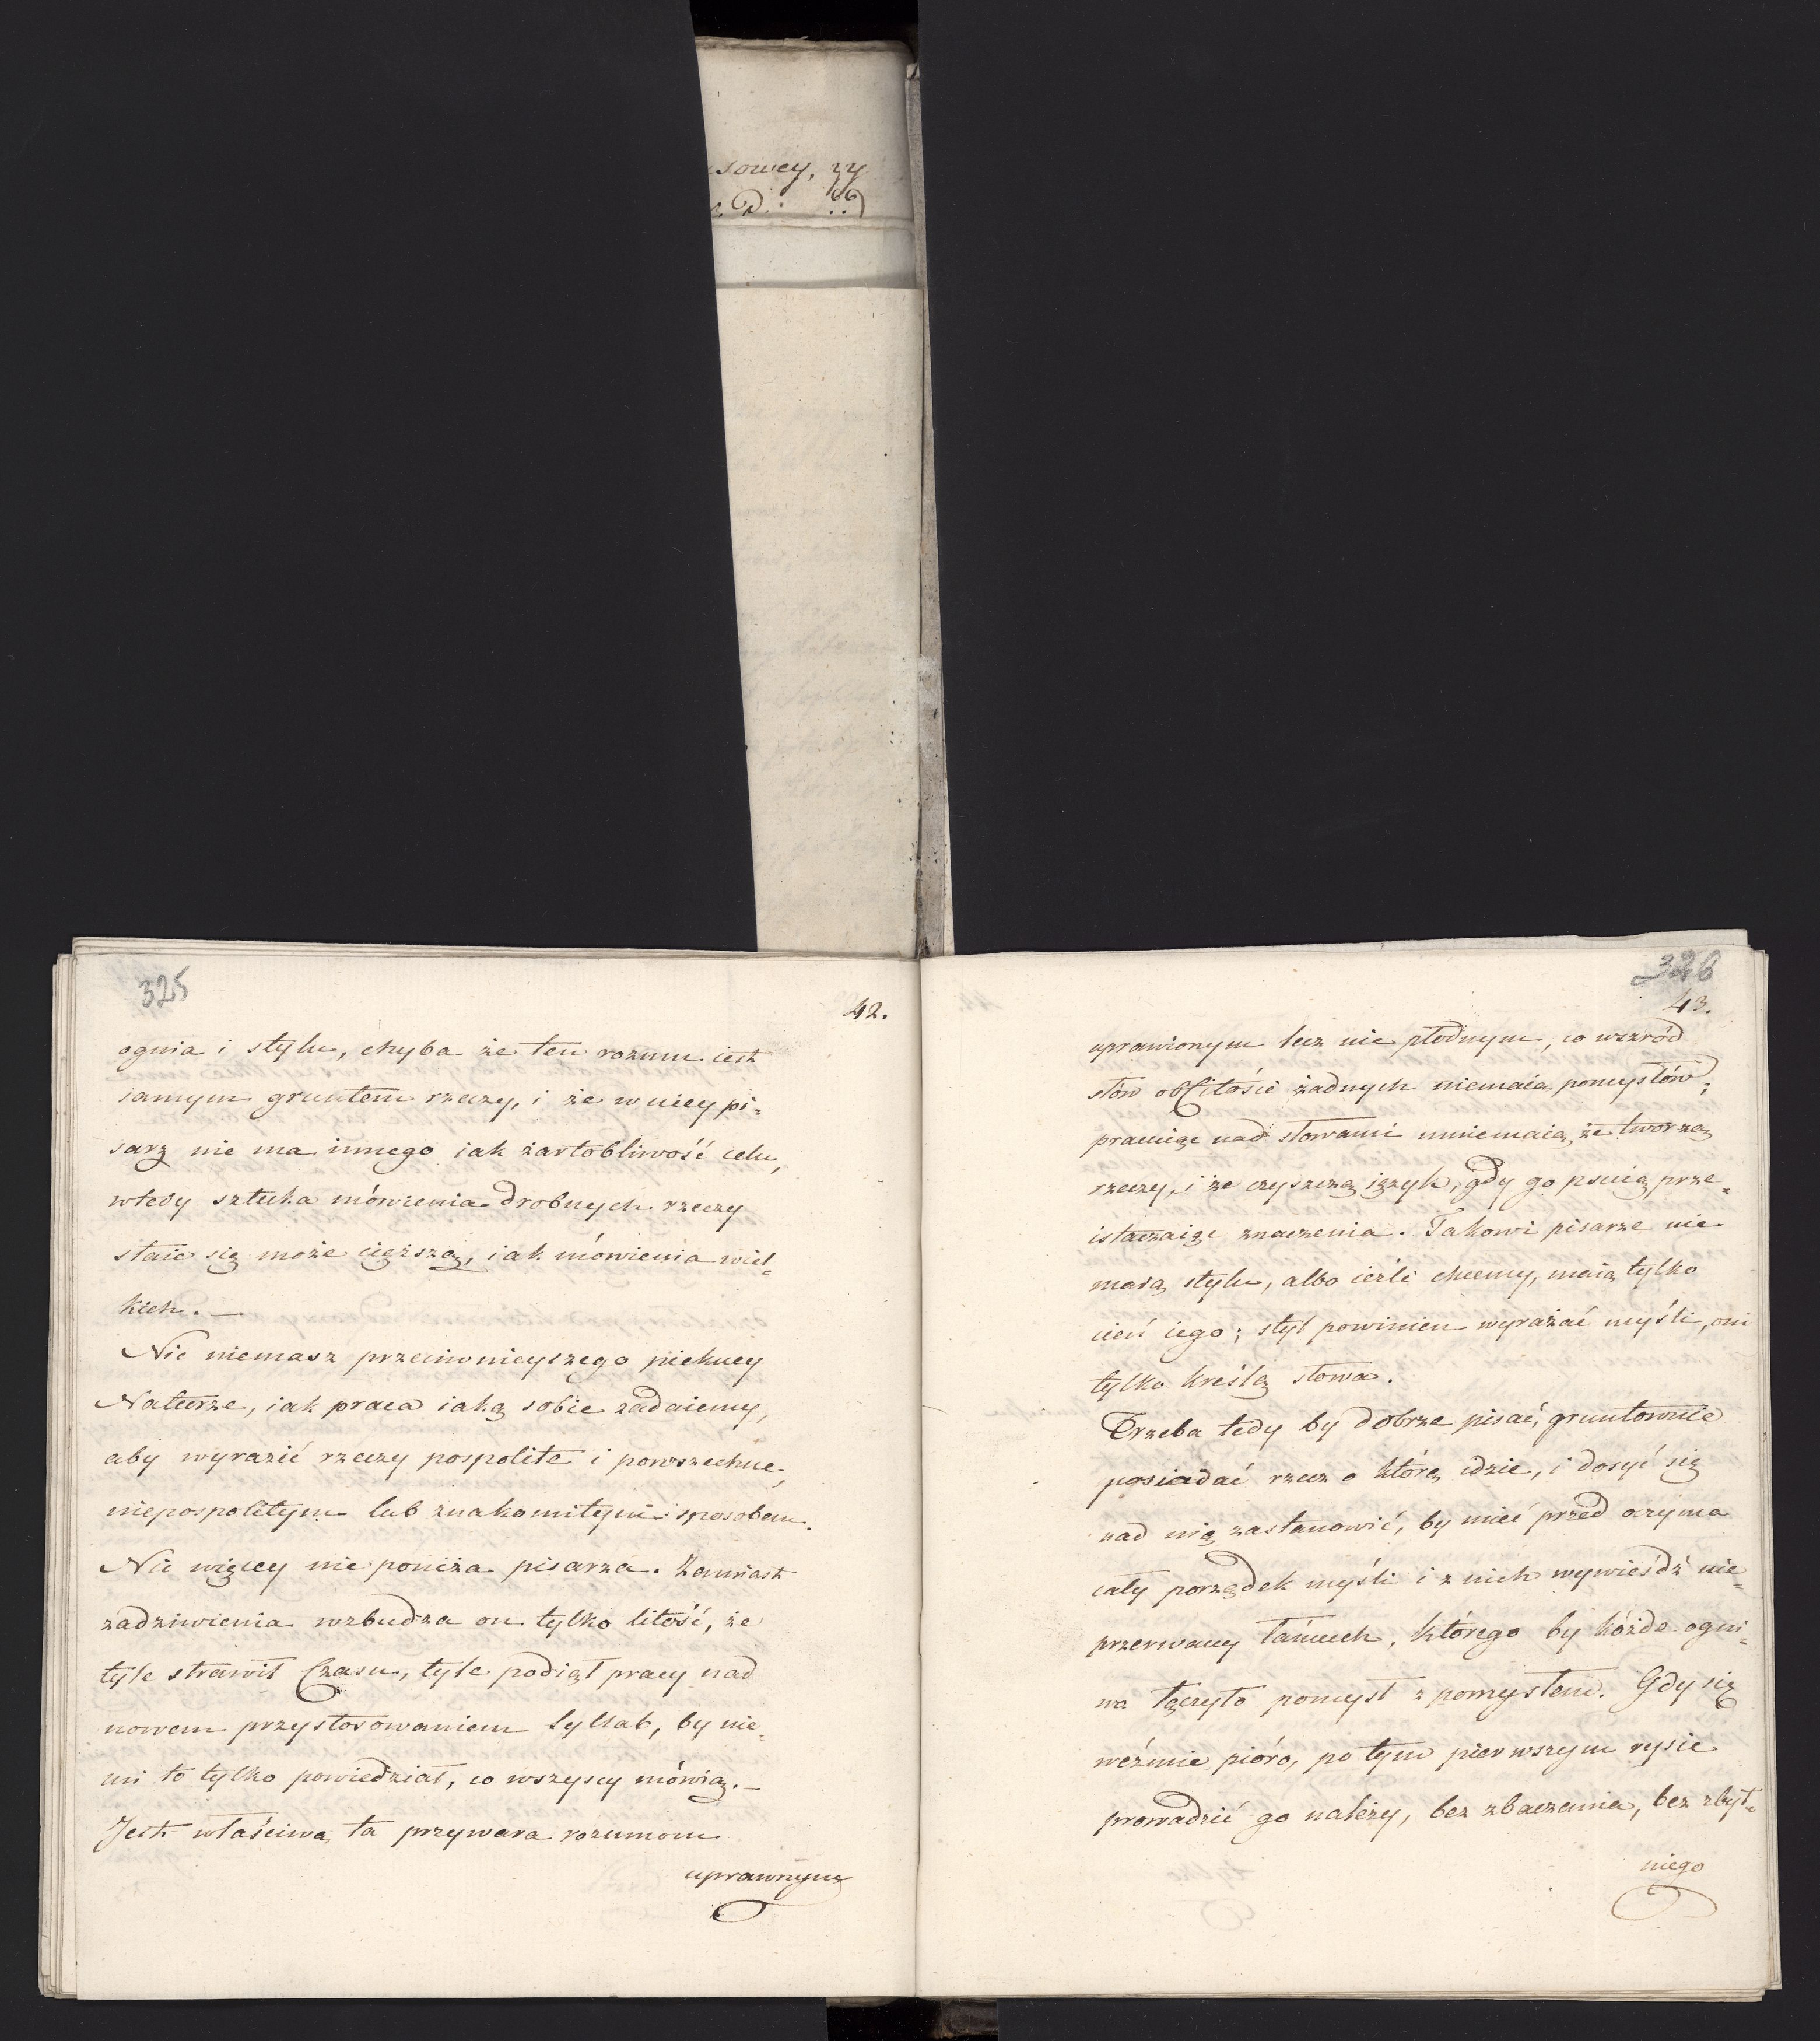 sowey, zy
325
42.
ognia i stylu, chyba że ten rozum iest
samym gruntem rzeczy, i że w niey pi=
sarz nie ma innego iak żartobliwość celu,
wtedy sztuka mówienia drobnych rzeczy
staie się może cięższą, iak mówienia wiel=
kich. —
Nic niemasz przeciwnieyszego piękney
Naturze, iak praca iaką sobie zadaiemy,
aby wyrazić rzeczy pospolite i powszechne,
niepospolitym lub znakomitym sposobem.
Nic więcey nie poniża pisarza. Zamiast
zadziwienia wzbudza on tylko litość, że
tyle strawił Czasu, tyle podiął pracy nad
nowem przystosowaniem Syllab, by nie=
mi to tylko powiedział, co wszyscy mówią. —
Jest właściwa ta przywara rozumom
uprawnym
326
43.
uprawionym lecz nie płodnym, co wśród
słów obfitości żadnych niemaią pomysłów;
pracuiąc nad słowami mniemaią, że tworzą
rzeczy, i że czyszczą ięzyk, gdy go psuią prze=
istaczaiąc znaczenia. Takowi pisarze nie
maią stylu, albo ieźli chcemy, maią tylko
cień iego; styl powinien wyrażać myśli, oni
tylko kreślą słowa.
Trzeba tedy by dobrze pisać, gruntownie
posiadać rzecz o którą idzie, i dosyć się
nad nią zastanowić, by mieć przed oczyma
cały porządek myśli i z nich wywieśdź nie=
przerwany łańcuch, którego by kóżde ogni=
wa łączyło pomysł z pomysłem. Gdy się
weźmie pióro, po tym pierwszym rysie
prowadzić go należy, bez zbaczania, bez zbyt=
niego